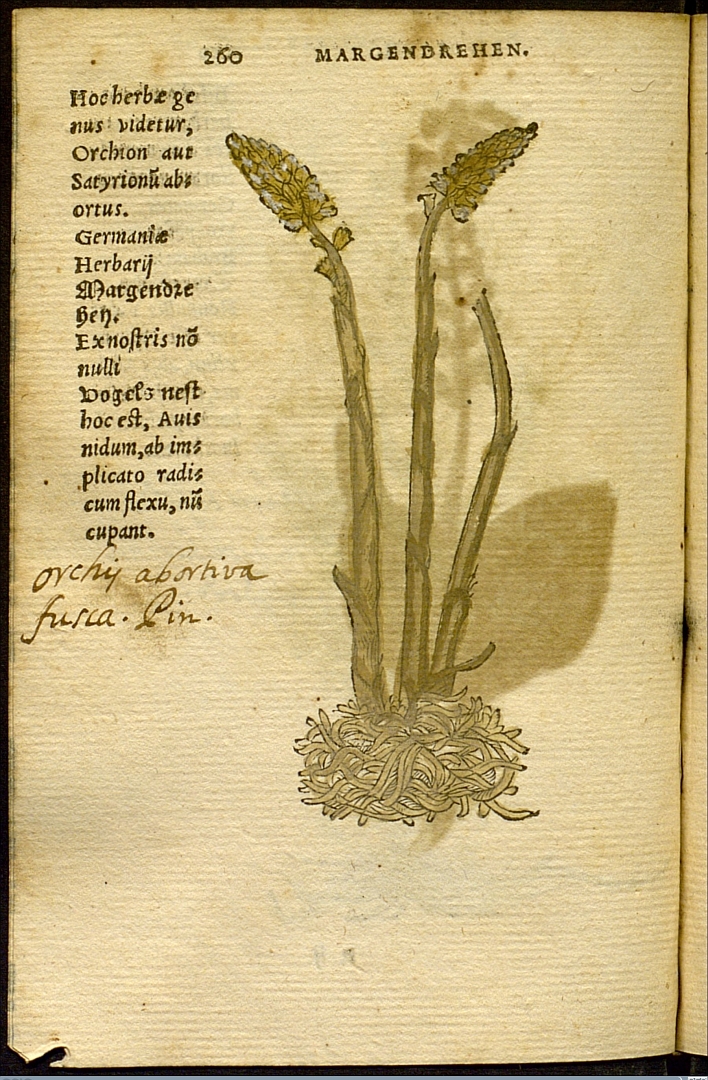 260 MARGENDREHEN.
Hoc herbæ ge
nus videtur,
Orchion aut
Satyrionũ ab⸗
ortus.
Germaniæ
Herbarij
Margendre
hen.
Ex nostris nõ
nulli
Vogels nest
hoc est, Auis
nidum, ab im⸗
plicato radi⸗
cum flexu, nũ
cupant.
orchij abortiva
fusca. Pin.